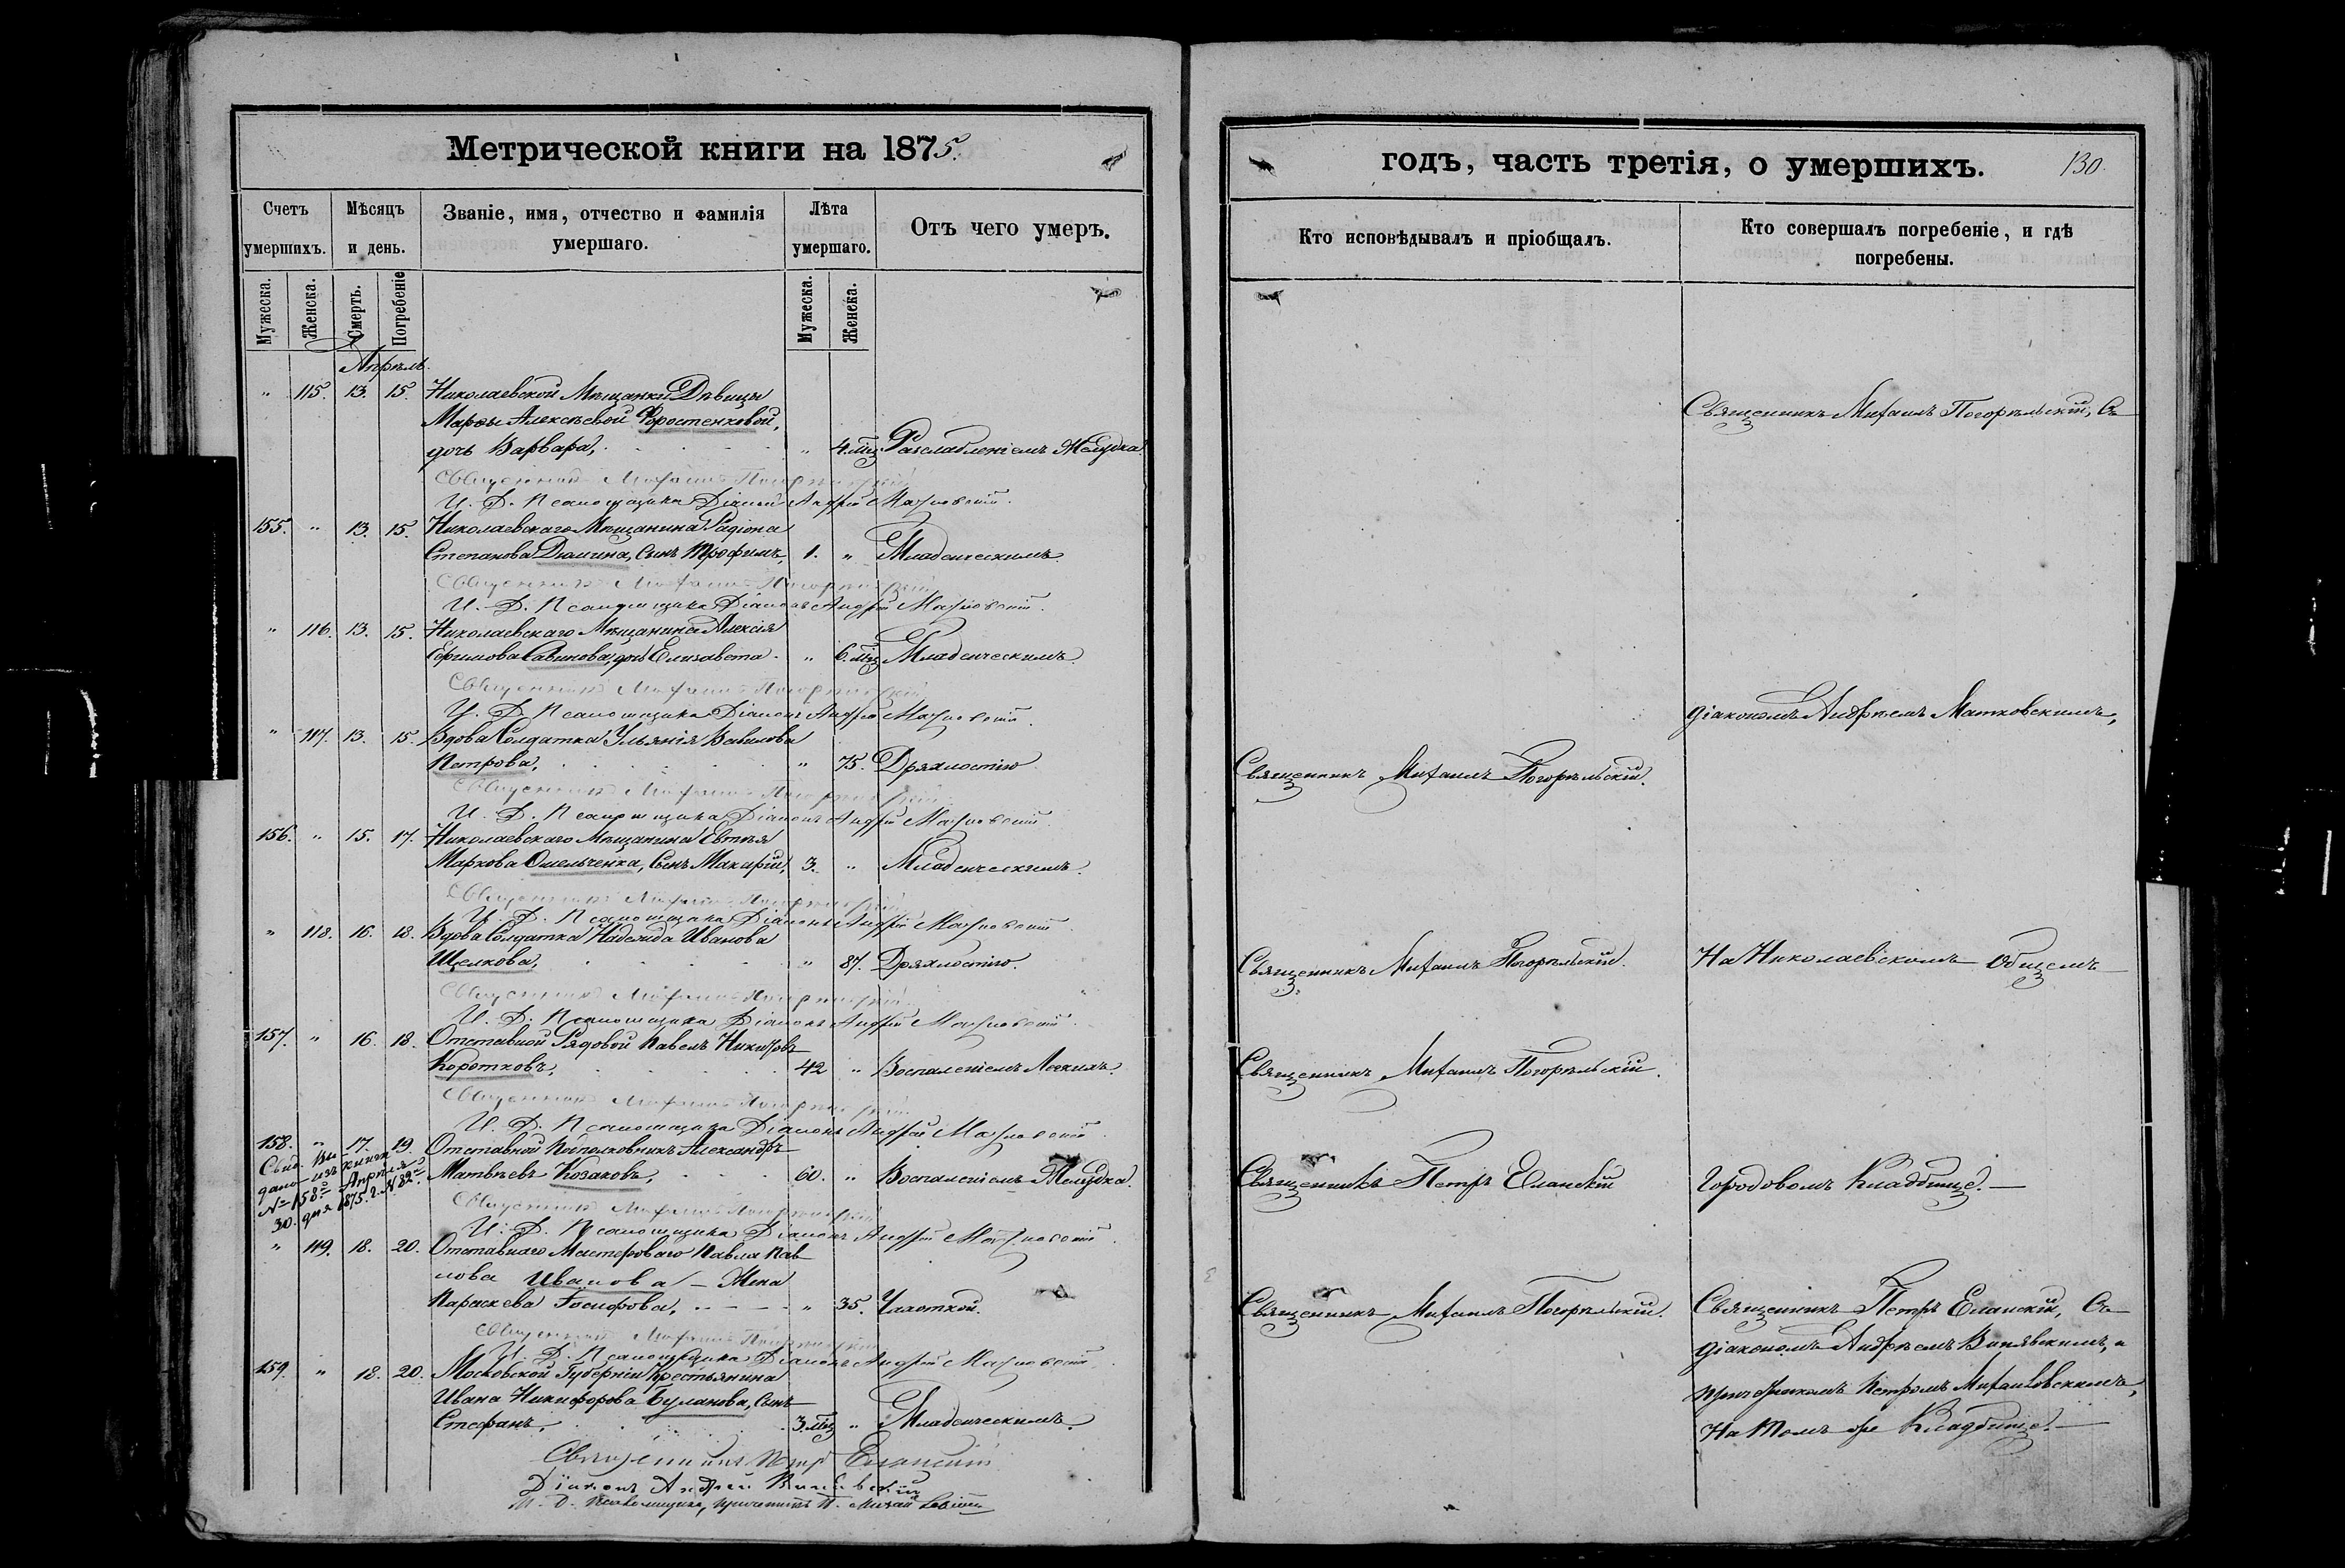 Метрической книги на 1875.
Счетъ умершихъ.
Мѣсяцъ и день.
Званіе, имя, отчество и фамилія умершаго.
Лѣта умершаго.
Отъ чего умеръ.
Мужеска. Женска. Смерть. Погребеніе Мужеска. Женска.
Апрѣль.
" 115. 13. 15. Николаевской Мѣщанки Дѣвицы
Марѳы Алексѣевой Форостенковой,
дочь Варвара, " 4. мѣс. Разслабленіемъ Желудка.
Священникъ Михаилъ Погорѣльскій
И. Д. Псаломщика Діаконъ Андрей Матковскій.
155. " 13. 15. Николаевскаго Мѣщанина Радіона
Степанова Дюмина, сынъ Трофимъ, 1. " Младенческимъ.
Священникъ Михаилъ Погорѣльскій
И. Д. Псаломщика Діаконъ Андрей Матковскій.
" 116. 13. 15. Николаевскаго Мѣщанина Алексія
Ефимова Савинова, дочь Елизавета. " 6. мѣс. Младенческимъ.
Священникъ Михаилъ Погорѣльскій
И. Д. Псаломщика Діаконъ Андрей Матковскій.
" 117. 13. 15. Вдова Солдатка Ульянія Вавилова
Петрова, " 75. Дряхлостію
Священникъ Михаилъ Погорѣльскій
И. Д. Псаломщика Діаконъ Андрей Матковскій
156. " 15. 17. Николаевскаго Мѣщанина Евтѣя
Маркова Омельченка, сынъ Макарій, 3. " Младенческимъ.
Священникъ Михаилъ Погорѣльскій
И. Д. Псаломщика Діаконъ Андрей Матковскій
" 118. 16. 18. Вдова Солдатка Надежда Иванова
Щелкова, " 87. Дряхлостію.
Священникъ Михаилъ Погорѣльскій
И. Д. Псаломщика Діаконъ Андрей Матковскій.
157. " 16. 18. Отставной Рядовой Павелъ
Коротковъ, 42 " Воспаленіемъ Легкихъ.
Священникъ Михаилъ Погорѣльскій
И. Д. Псаломщика Діаконъ Андрей Матковскій.
158. " 17. 19. Отставной Подполковникъ Александръ
Матвѣевъ Козаковъ, 60. " Воспаленіемъ Желудка.
дано изъ книги
№ 158. Апрѣля
30. дня 1875. г. № 82.
Священникъ Михаилъ Погорѣльскій
И. Д. Псаломщика Діаконъ Андрей Матковскій.
" 119. 18. 20. Отставнаго Мастероваго Павла Пав
лова Иванова — Жена
Параскева Іосифова, " 35. Чахоткой.
Священникъ Михаилъ Погорѣльскій
И. Д. Псаломщика Діаконъ Андрей Матковскій.
159. " 18. 20. Московской Губерніи Крестьянина
Ивана Никифорова Буланова, сынъ
Стефанъ, 3. мѣс. " Младенческимъ.
Священникъ Петр Еланскій
Діаконъ Андрей
И. Д. Псаломщика, причетникъ П.
годъ, часть третія, о умершихъ.
130.
Кто исповѣдывалъ и пріобщалъ.
Кто совершалъ погребеніе, и гдѣ погребены.
Священникъ Михаилъ Погорѣльскій, Съ
діакономъ Андреемъ Матковскимъ,
Священникъ Михаилъ Погорѣльскій.
Священникъ Михаилъ Погорѣльскій.
На Николаевскомъ Общемъ
Священникъ Михаилъ Погорѣльскій.
Священникъ Петръ Еланскій
Городовомъ Кладбище. —
Священникъ Михаилъ Погорѣльскій.
Священникъ Петръ Еланскій, Съ
діакономъ Андреемъ и
причетникомъ Петромъ
На томъ же Кладбище. —